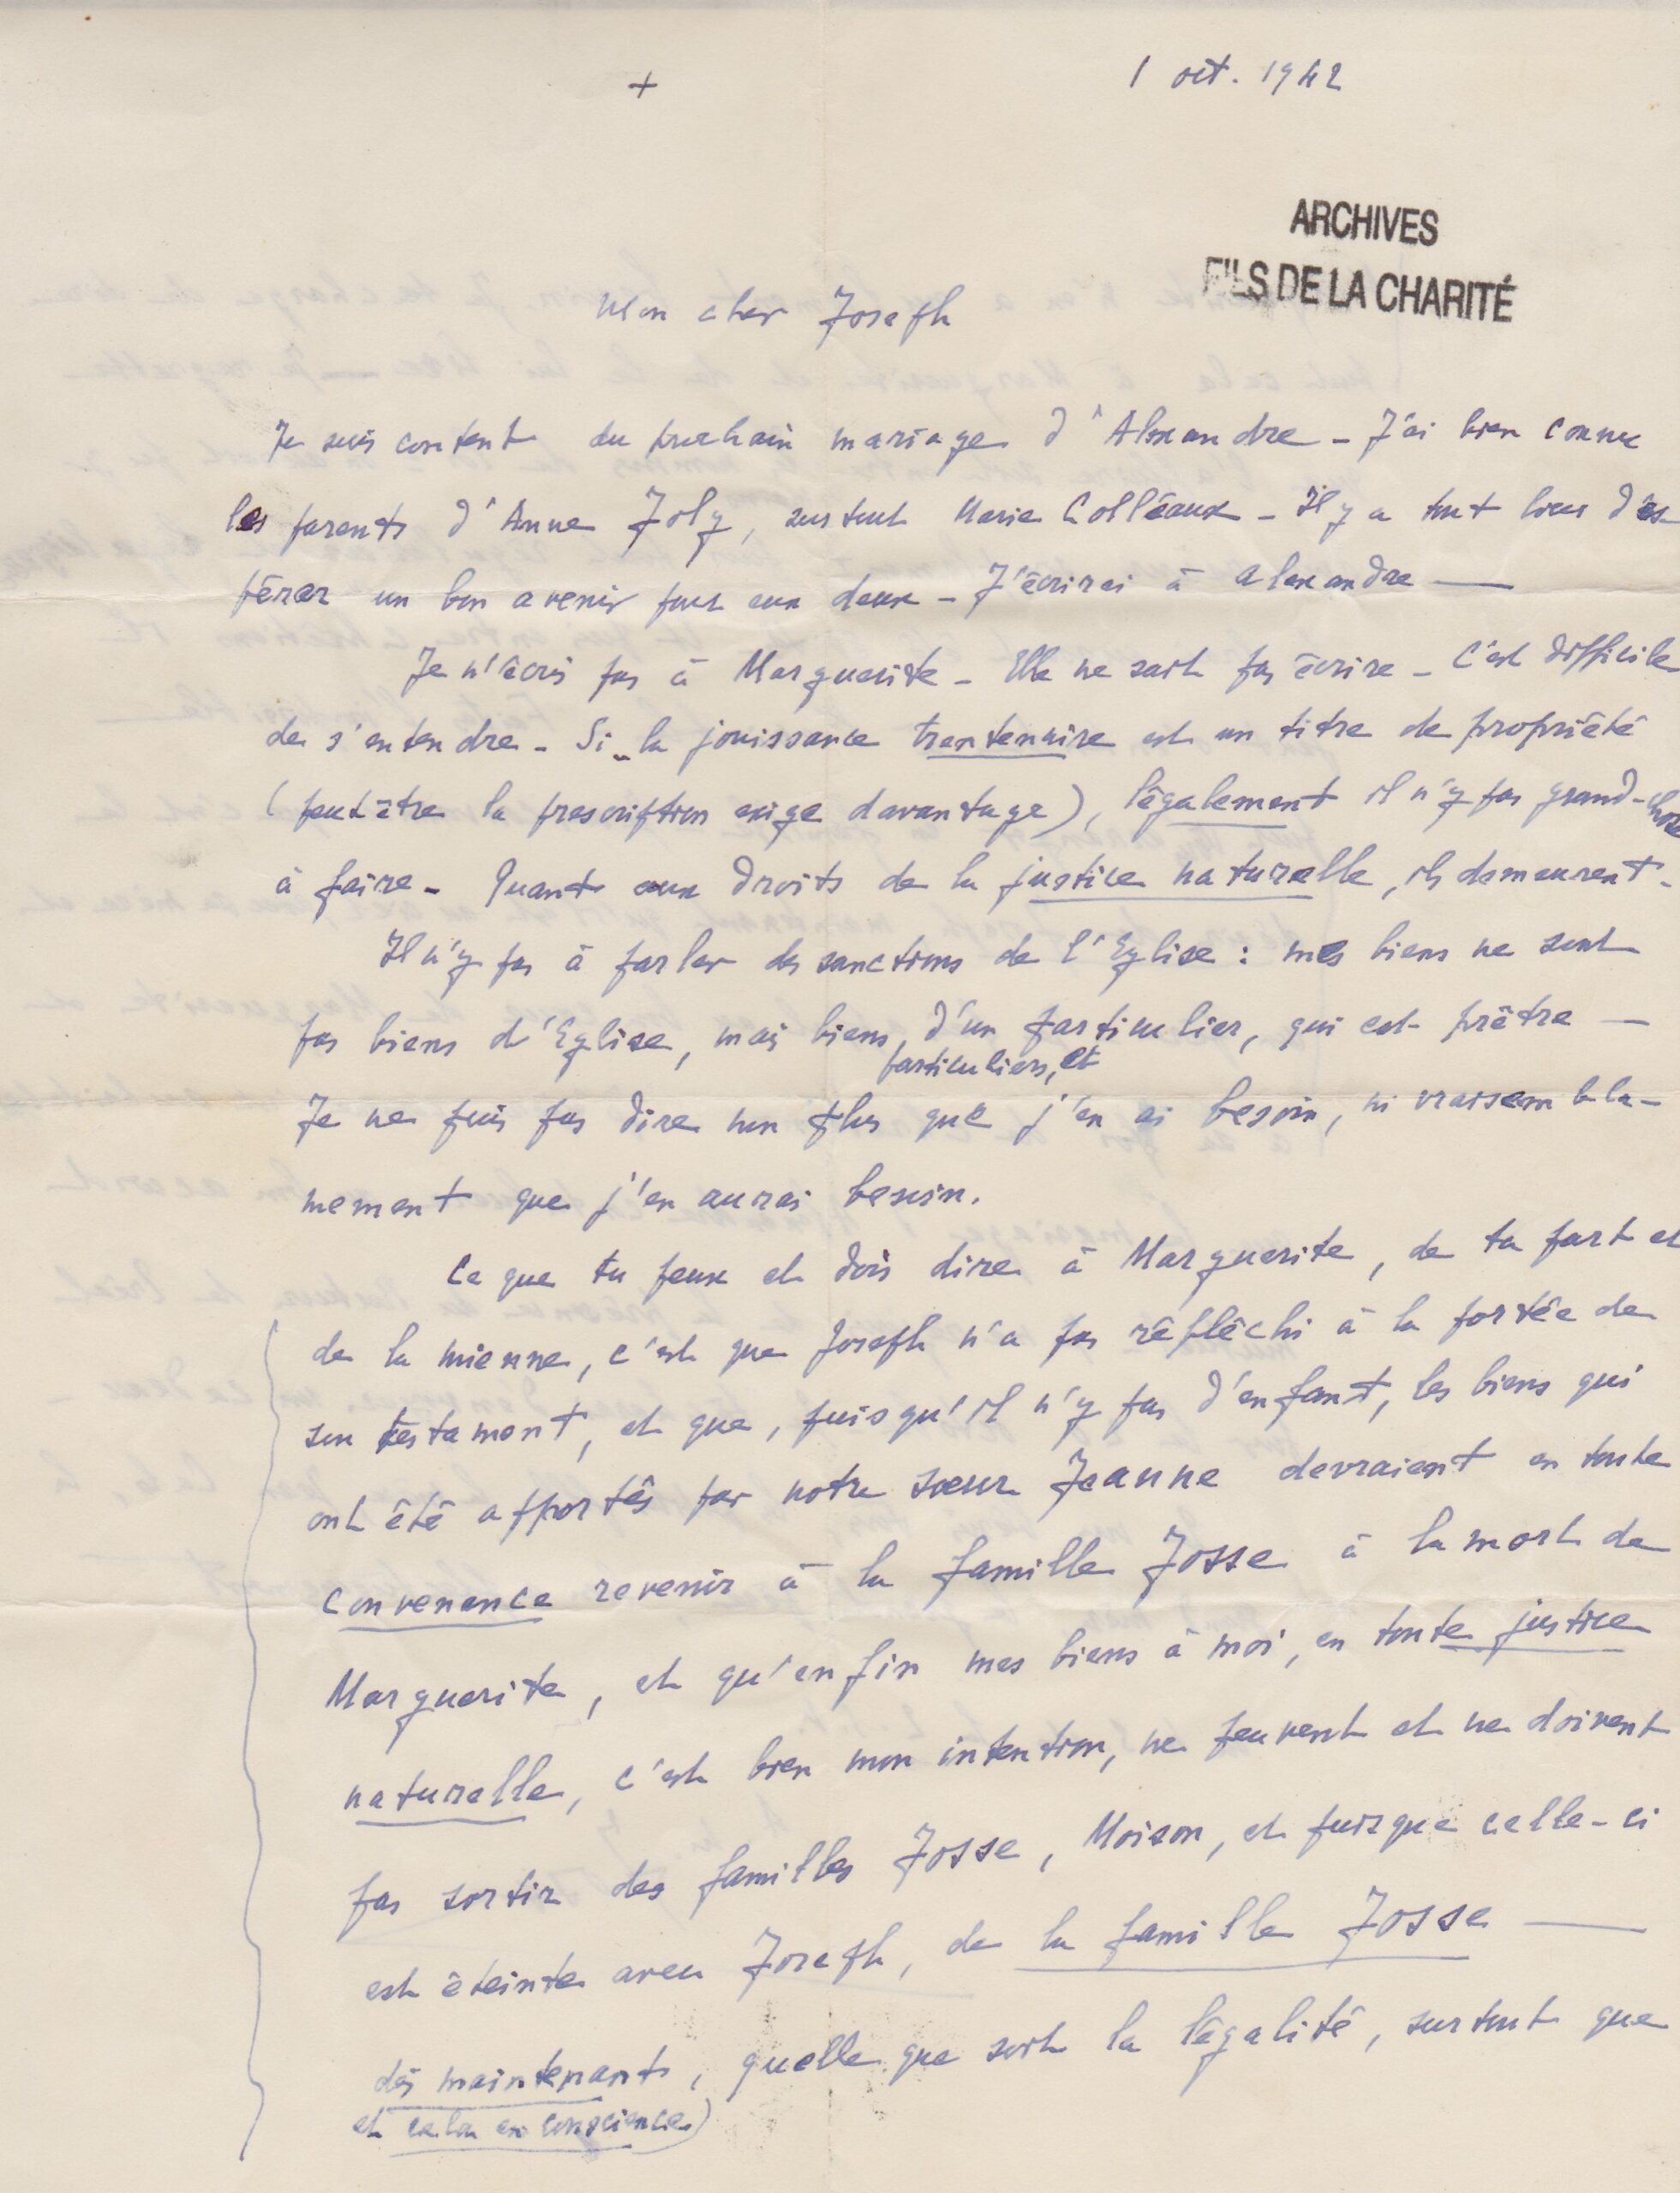 +
1 oct. 1942
ARCHIVES
FILS DE LA CHARITÉ
Mon cher Joseph
Je suis content du prochain mariage d'Alexandre - J'ai bien connu
les parents d'Anne Joly, surtout Marie Colléaux - Il y a tout lieu d'es-
pérer un bon avenir pour eux deux - J'écrirai à Alexandre —
Je n'écris pas à Marguerite - Elle ne sait pas écrire - C'est difficile
de s'entendre - Si la jouissance trentenaire est un titre de propriété
(peut être la prescription exige davantage), légalement il n'y pas grand-chose
à faire - Quant aux droits de la justice naturelle, ils demeurent -
Il n'y pas à parler des sanctions de l'Eglise : mes biens ne sont
pas biens d'Eglise, mais biens d'un particulier, qui est prêtre —
particuliers, et
Je ne puis pas dire non plus que j'en ai besoin, ni vraisembla-
mement que j'en aurai besoin.
Ce que tu peux et dois dire à Marguerite, de ta part et
de la mienne, c'est que Joseph n'a pas réfléchi à la portée de
son testament, et que, puisqu'il n'y pas d'enfant, les biens qui
ont été apportés par notre sœur Jeanne devraient en toute
convenance revenir à la famille Josse à la mort de
Marguerite, et qu'enfin mes biens à moi, en toute justice
naturelle, c'est bien mon intention, ne peuvent et ne doivent
pas sortir des familles Josse, Moison, et puisque celle-ci
est éteinte avec Joseph, de la famille Josse —
dès maintenant, quelle que soit la légalité, surtout que
et cela en conscience)